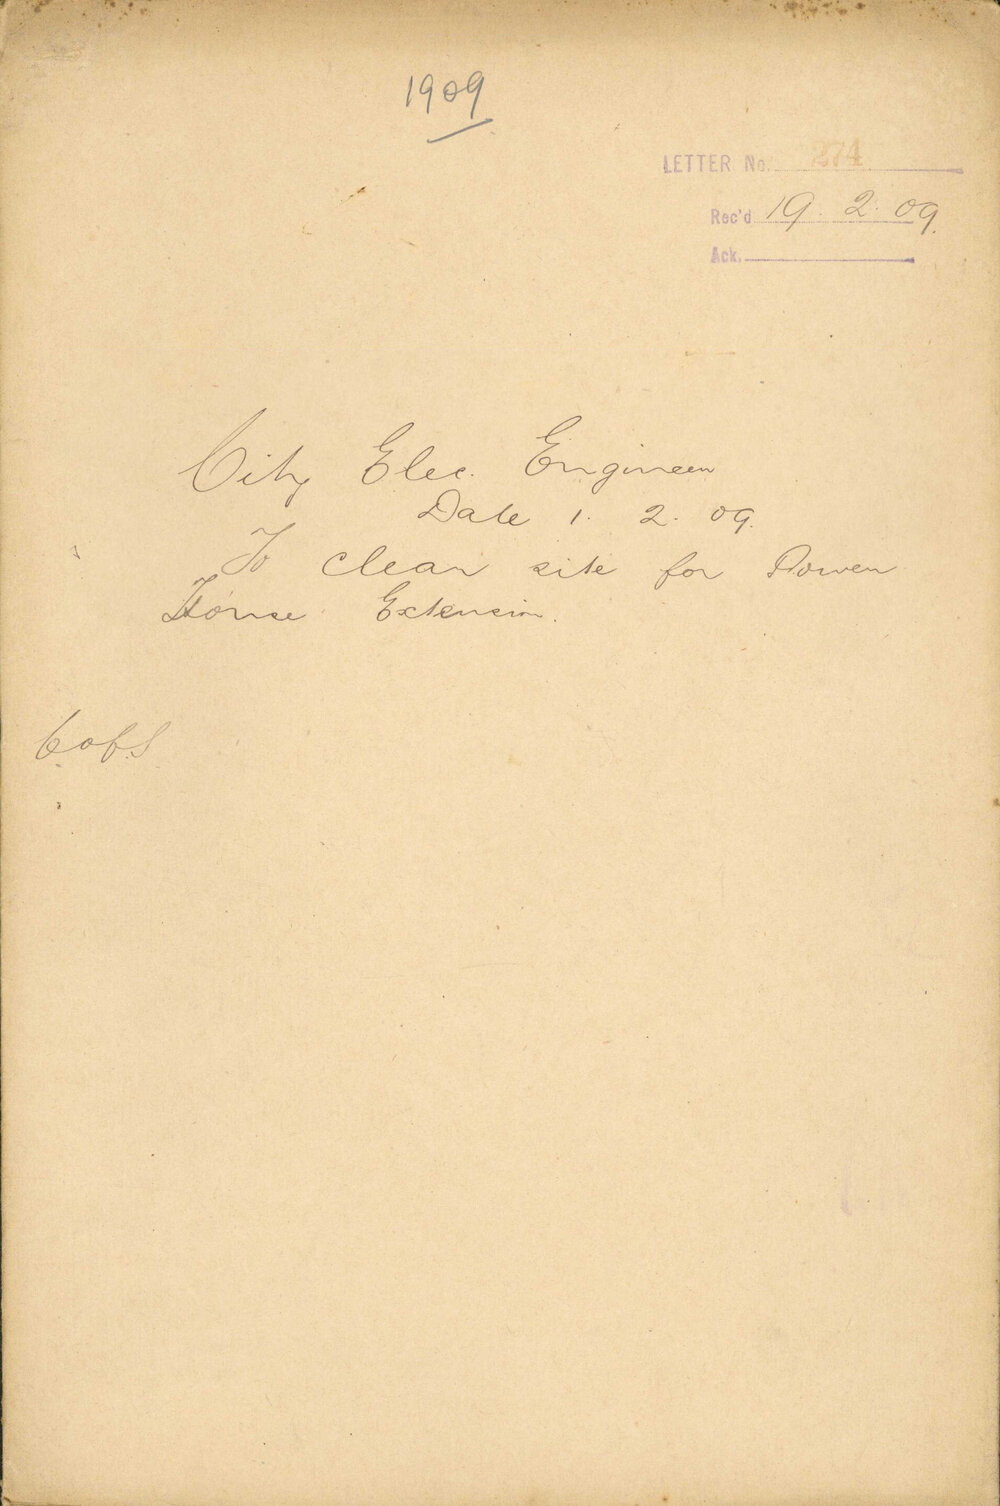 1909
LETTER No. 274
Rec'd 19. 2. 09.
Ack.
City Elec. Engineer
Date 1. 2. 09.
To clear site for Power
House Extension.
C of S